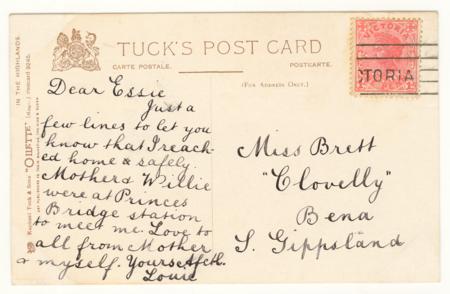 TUCK'S POST CARD
CARTE POSTALE. POSTKARTE.
(FOR ADDRESS ONLY.)
IN THE HIGHLANDS.
Raphael Tuck & Sons' "OILETTE" (Regd.) Postcard 9040.
VICTORIA
CTORIA
Dear Essie
Just a
few lines to let you
know that I reach-
ed home & safely.
Mother & Willie
were at Princes
Bridge station
to meet me. Love to
all from Mother
& myself. Yours Afctl.
Louie
Miss Brett
"Clovelly"
Bena
S. Gippsland